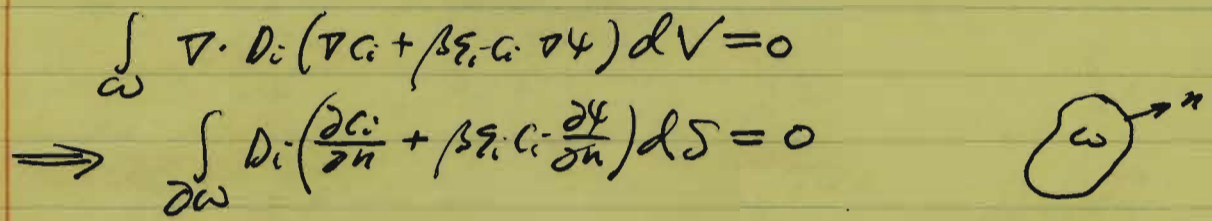 ∫_ω ∇· Dᵢ (∇cᵢ + βqᵢ cᵢ ∇ψ) dV = 0
⟹ ∫_∂ω Dᵢ (∂cᵢ/∂n + βqᵢ cᵢ ∂ψ/∂n) dS = 0
n
ω